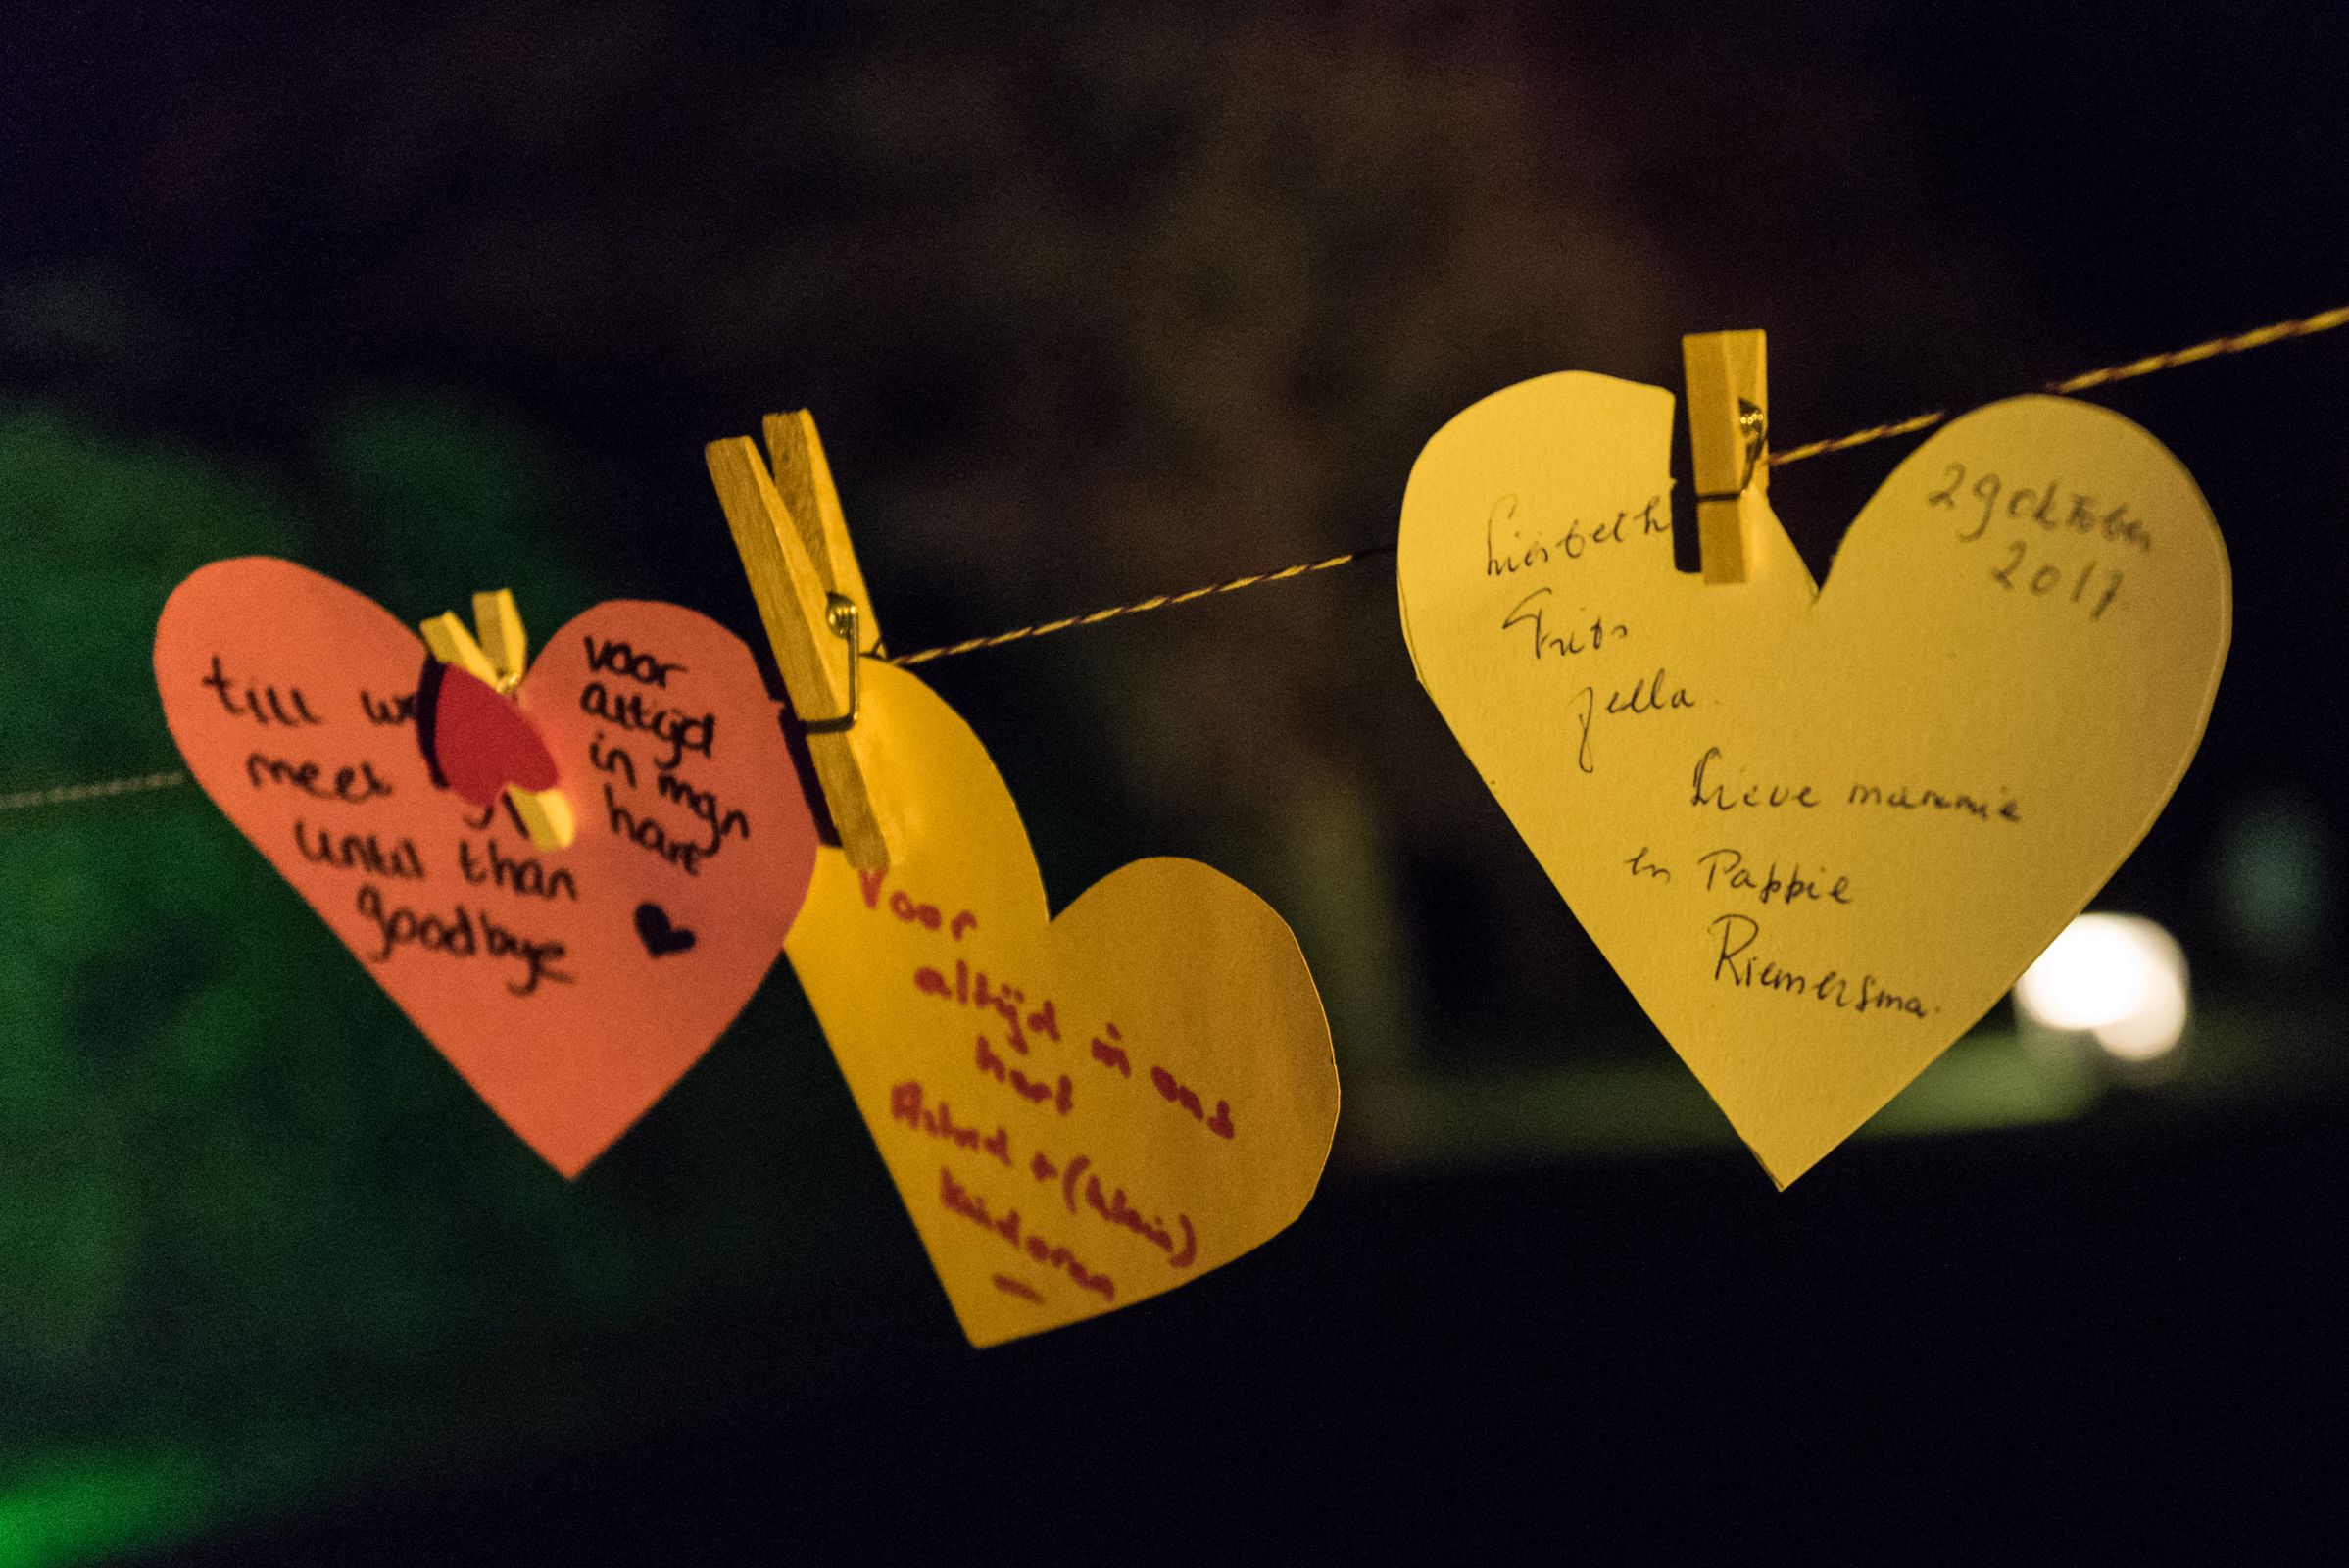 till we
meet
until than
goodbye
voor
altijd
in mijn
hart
Voor
altijd in ons
hart
Astrid + (klein)
kinderen
Liesbeth
Frits
Jella
Lieve mammie
en Pappie
Riemersma.
29 oktober
2017